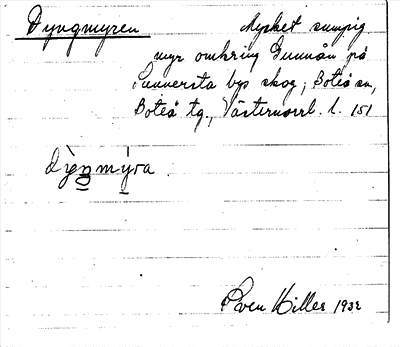 Dyngmyren
Mycket sumpig
myr omkring Gunnån på
Sunnersta bys skog; Boteå sn,
Boteå tg., Västernorrl. l. 151
dyŋmýra.
Sven Hiller 1932